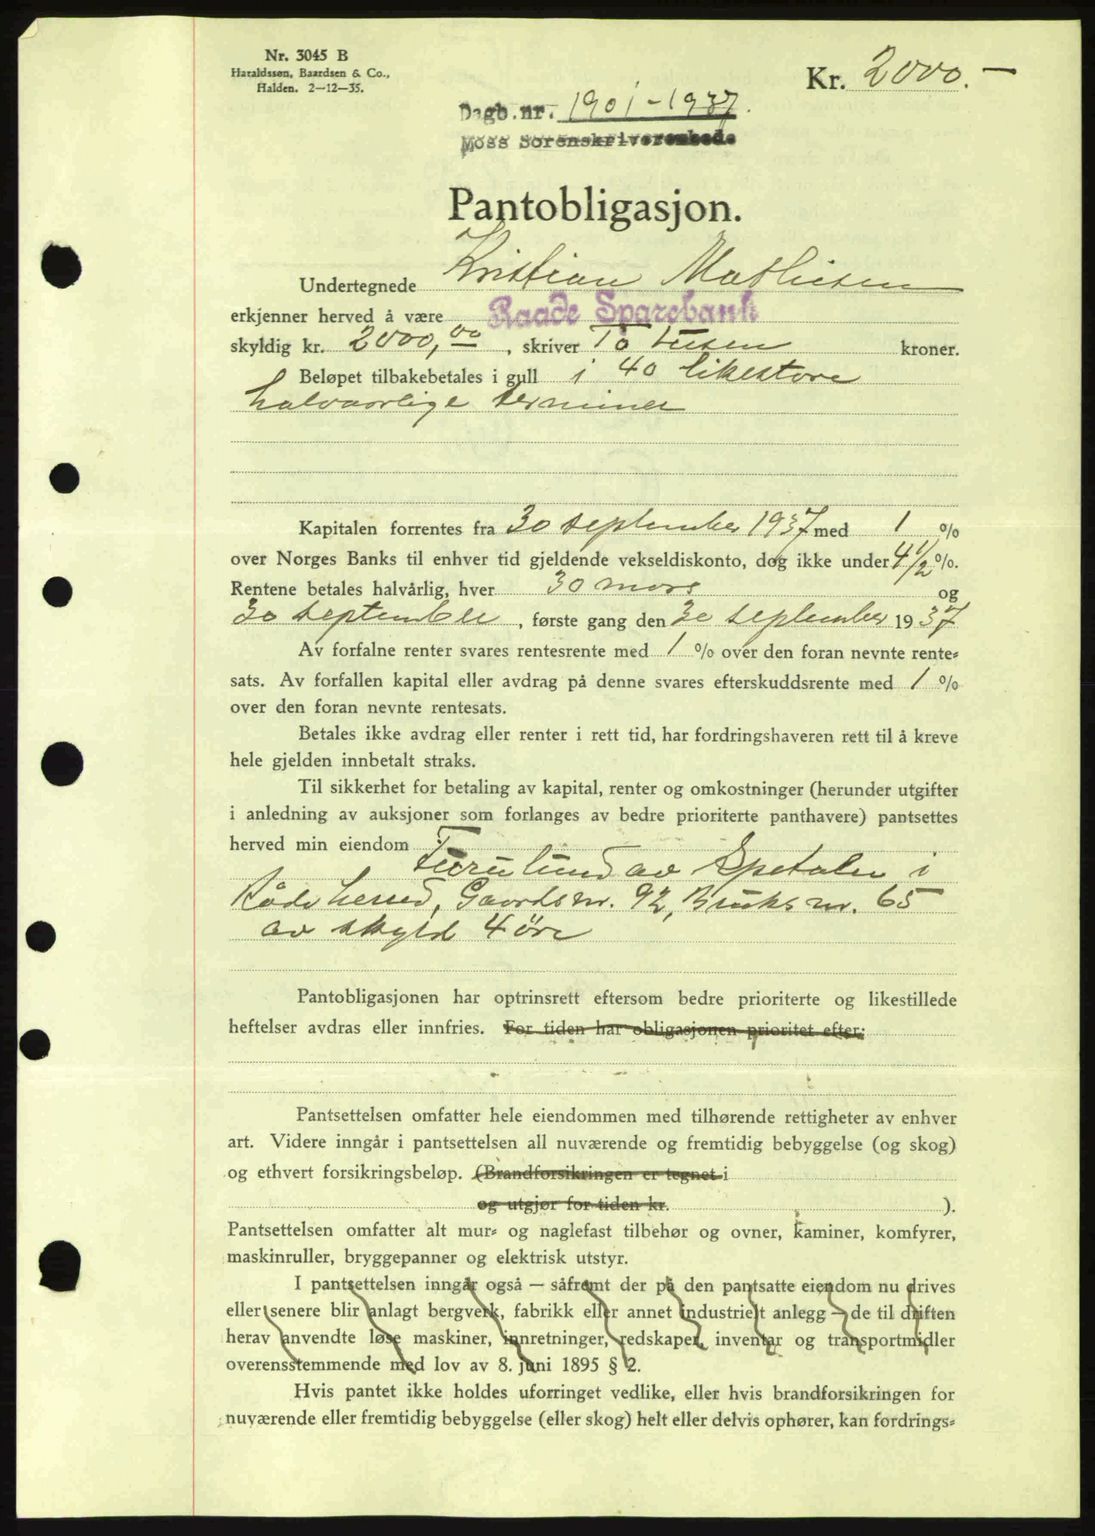 Nr. 3045 B
Haraldssøn, Baardsen & Co.,
Halden. 2—12—35.
Kr. 2000.—
Dagb.nr. 1901-1937.
Moss Sorenskriverembede
Pantobligasjon.
Undertegnede Kristian Mathisen
erkjenner herved å være Raade Sparebank
skyldig kr. 2000,00, skriver To tusen kroner.
Beløpet tilbakebetales i gull i 40 likestore
halvaarlige terminer
Kapitalen forrentes fra 30 september 1937 med 1 %
over Norges Banks til enhver tid gjeldende vekseldiskonto, dog ikke under 4 1/2 %.
Rentene betales halvårlig, hver 30 mars og
30 september, første gang den 30 september 1937
Av forfalne renter svares rentesrente med 1 % over den foran nevnte rente-
sats. Av forfallen kapital eller avdrag på denne svares efterskuddsrente med 1 %
over den foran nevnte rentesats.
Betales ikke avdrag eller renter i rett tid, har fordringshaveren rett til å kreve
hele gjelden innbetalt straks.
Til sikkerhet for betaling av kapital, renter og omkostninger (herunder utgifter
i anledning av auksjoner som forlanges av bedre prioriterte panthavere) pantsettes
herved min eiendom Furulund av Spetalen i
Råde herred, Gaardsnr. 92, Bruksnr. 65
av skyld 4 öre
Pantobligasjonen har optrinsrett eftersom bedre prioriterte og likestillede
heftelser avdras eller innfries. For tiden har obligasjonen prioritet efter:
Pantsettelsen omfatter hele eiendommen med tilhørende rettigheter av enhver
art. Videre inngår i pantsettelsen all nuværende og fremtidig bebyggelse (og skog)
og ethvert forsikringsbeløp. (Brandforsikringen er tegnet i
og utgjør for tiden kr. ).
Pantsettelsen omfatter alt mur- og naglefast tilbehør og ovner, kaminer, komfyrer,
maskinruller, bryggepanner og elektrisk utstyr.
I pantsettelsen inngår også — såfremt der på den pantsatte eiendom nu drives
eller senere blir anlagt bergverk, fabrikk eller annet industrielt anlegg — de til driften
herav anvendte løse maskiner, innretninger, redskaper, inventar og transportmidler
overensstemmende med lov av 8. juni 1895 § 2.
Hvis pantet ikke holdes uforringet vedlike, eller hvis brandforsikringen for
nuværende eller fremtidig bebyggelse (eller skog) helt eller delvis ophører, kan fordrings-